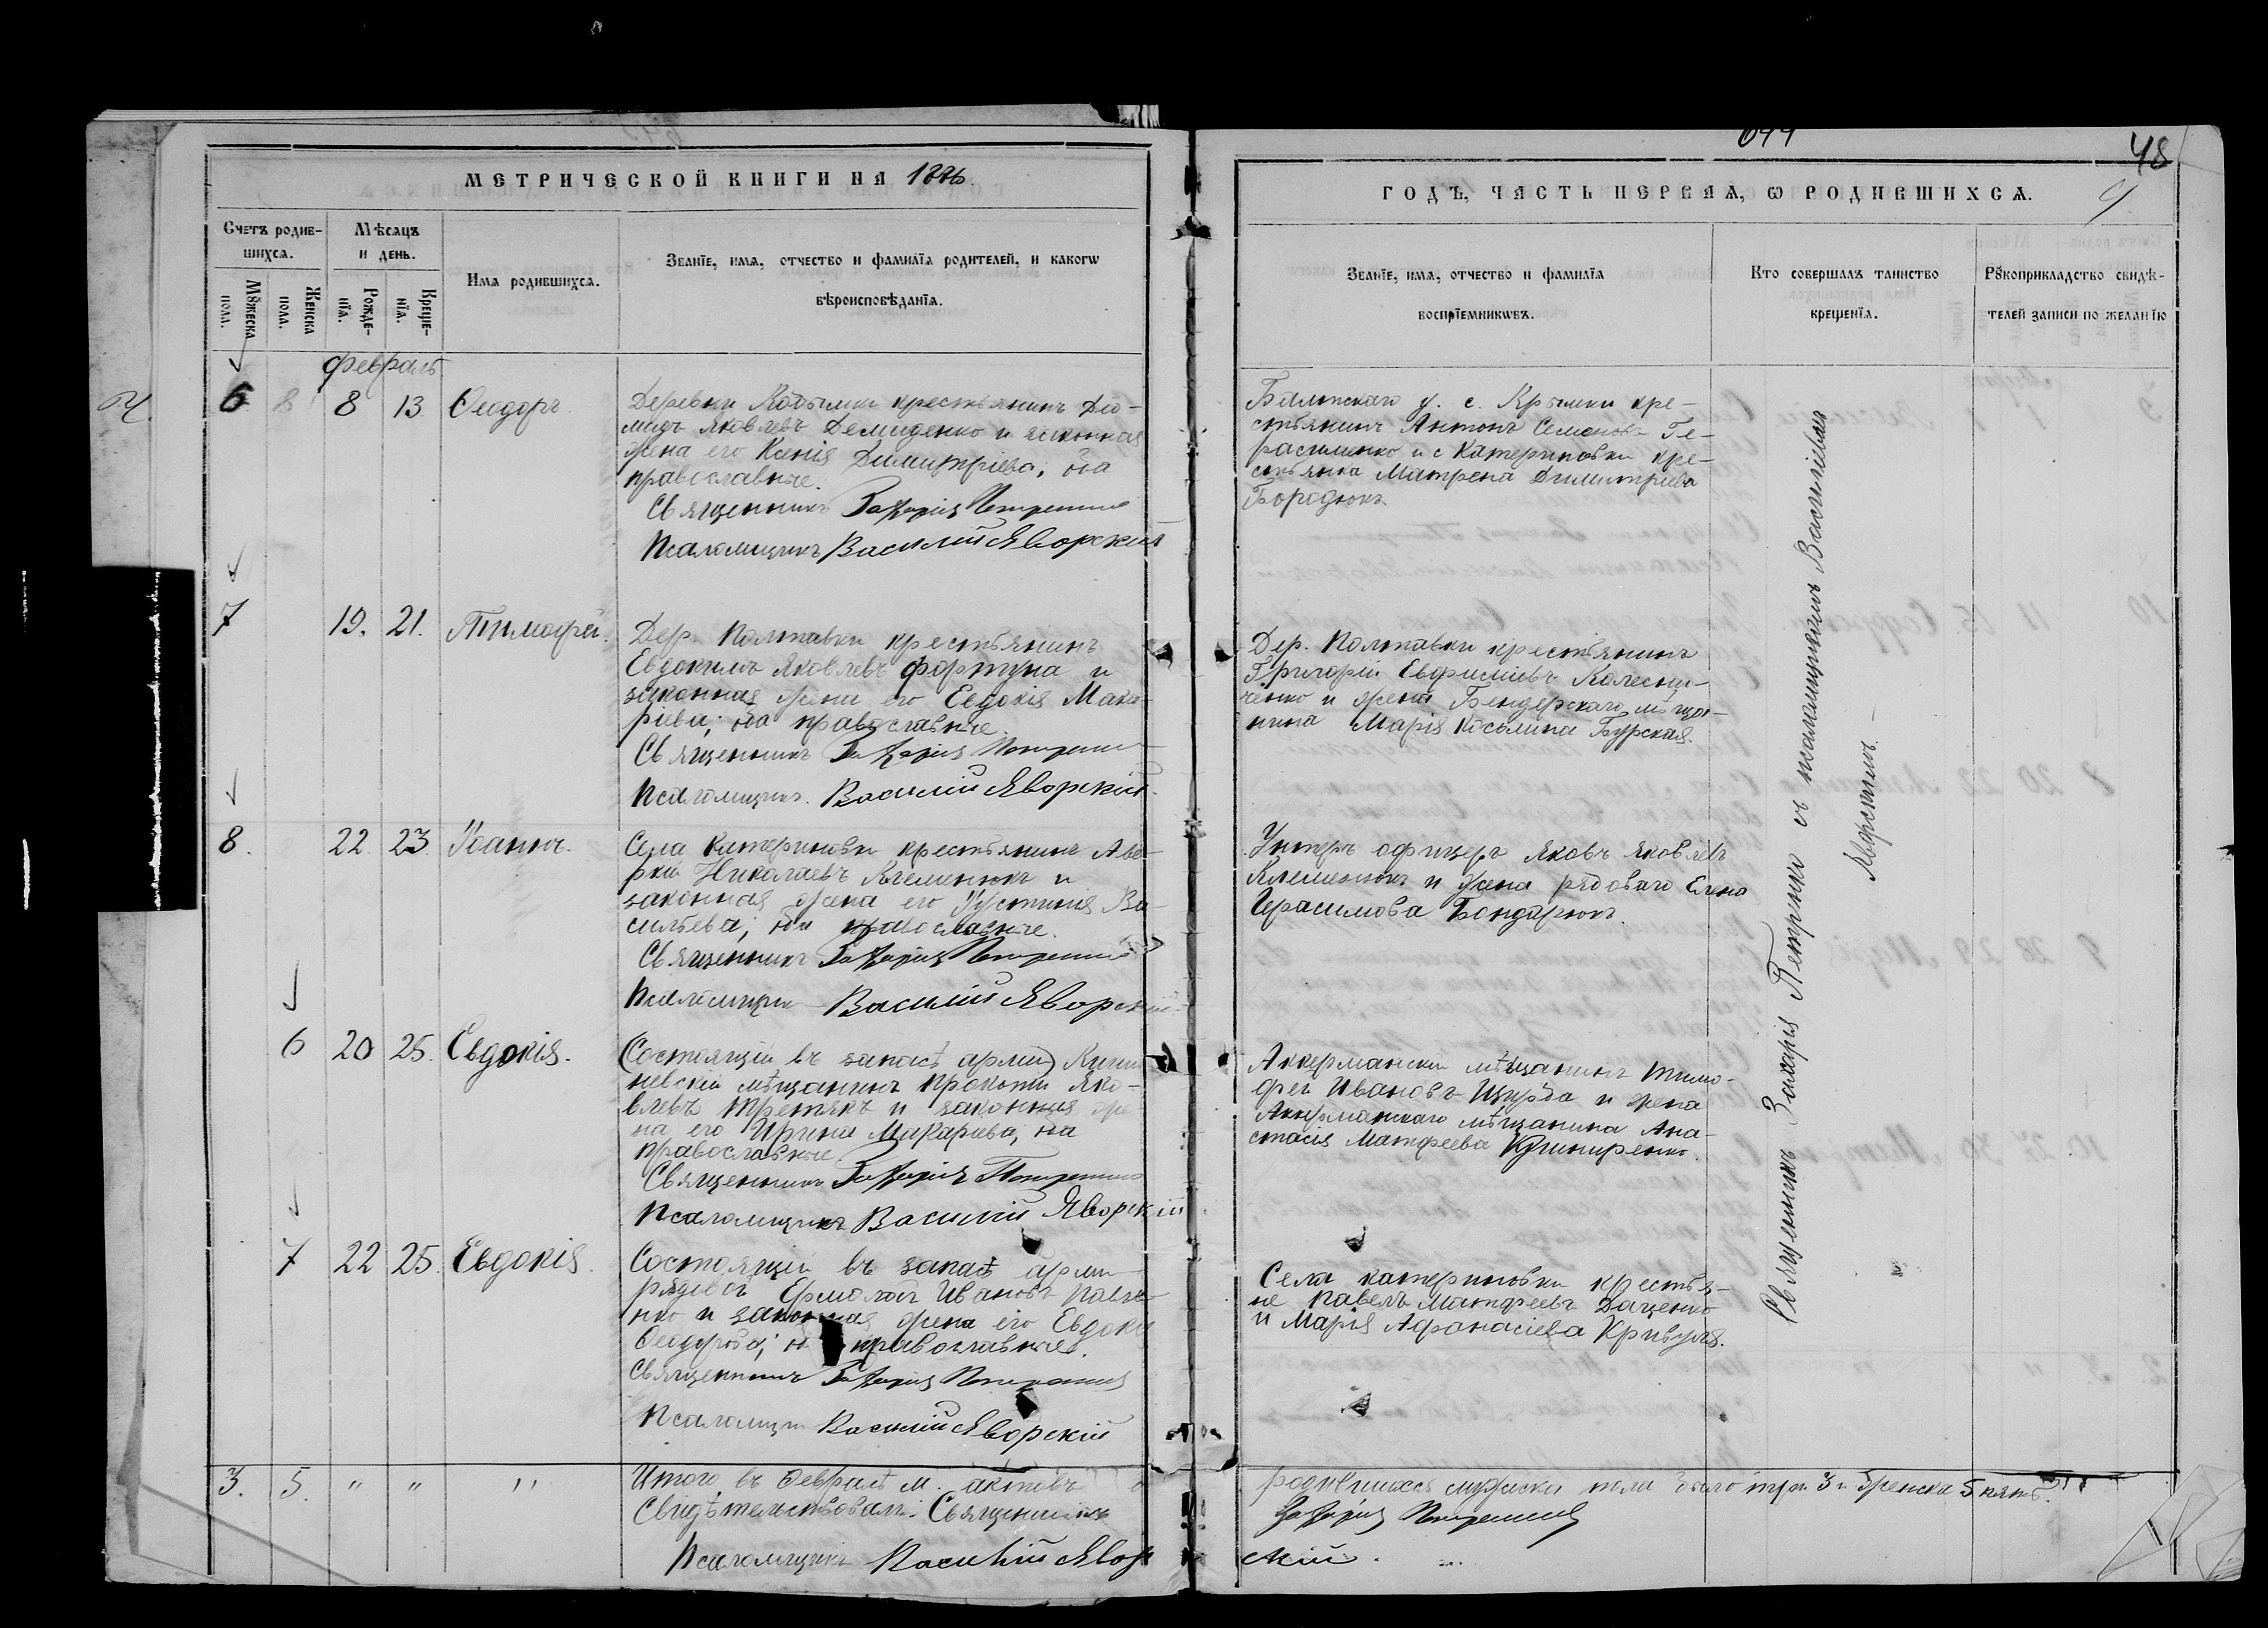 48
МЕТРИЧЕСКОЙ КНИГИ НА 1886
ГОДЪ, ЧАСТЬ ПЕРВАЯ, Ѡ РОДИВШИХСѦ.
Счетъ родив-
шихсѧ.
Мꙋжеска пола.
Женска пола.
Мѣсѧцъ
и день.
Рожде-нїѧ.
Креще-нїѧ.
Имѧ родившихсѧ.
Званїе, имѧ, отчество и фамилїѧ родителей, и какогѡ
вѣроисповѣданїѧ.
Званїе, имѧ, отчество и фамилїѧ
воспрїемникѡвъ.
Кто совершалъ таинство
крещенїѧ.
Рꙋкоприкладство свидѣ-
телей записи по желанїю
Февраль
6 8 13 Ѳеодоръ
Деревни крестьянинъ Дio-
мидъ Яковлевъ Демиденко и законная
жена его Ксенія Димитріева, оба
православные.
Священникъ Захарія
Псаломщикъ Василій Яворскій
Балтскаго у. с. Крымки кре-
стьянинъ Антонъ Семеновъ Ге-
расименко и с Катериновки кре-
стьянка Матрена Димитріева
Бородюкъ.
7 19. 21. Тимофей.
Дер. Полтавки крестьянинъ
Евдокимъ Яковлевъ Фортуна и
законная жена его Евдокія Мака-
ріева, оба православные.
Священникъ Захарія
Псаломщикъ. Василій Яворскій.
Дер. Полтавки крестьянинъ
Григорій Евфиміевъ Колесни-
ченко и жена Бендерскаго мѣща-
нина Марія Косьмина Бурская.
8. 22 23 Іоаннъ.
Села Катериновки крестьянинъ Аве-
ркій Николаевъ Клеменюкъ и
законная жена его Іустинія Ва-
сильева, оба православные.
Священникъ Захарія
Псаломщикъ Василій Яворскій
Унтеръ офицеръ Яковъ Яковлевъ
Клеменюкъ и жена рядового Елена
Герасимова Бондарюкъ.
6 20 25. Евдокія.
(Состоящій въ запасѣ арміи) Киши-
невскій мѣщанинъ Прокопій Яко-
влевъ Третякъ и законная же-
на его Ирина Макаріева, оба
православные.
Священникъ Захарія
Псаломщикъ Василій Яворскій
Аккерманскій мѣщанинъ Тимо-
фей Ивановъ и жена
Аккерманскаго мѣщанина Ана-
стасія Матфеева
7 22 25. Евдокія.
Состоящій въ запасѣ арміи
рядовой Ермолай Ивановъ
и законная жена его Евдокія
Ѳеодорова; православные.
Священникъ Захарія
Псаломщикъ Василій Яворскій
Села Катериновки крестья-
не Павелъ Матфеевъ Даценко
и Марія Афанасіева Кривуля.
Священникъ Захарія Петренко съ псаломщикомъ Василіемъ
Яворскимъ.
3. 5. " " "
Итого въ Февралѣ м. актовъ о родившихся мужска пола было три 3 и женска 5 пять.
Свидѣтельствовали: Священникъ Захарія
Псаломщикъ Василій Яворскій.